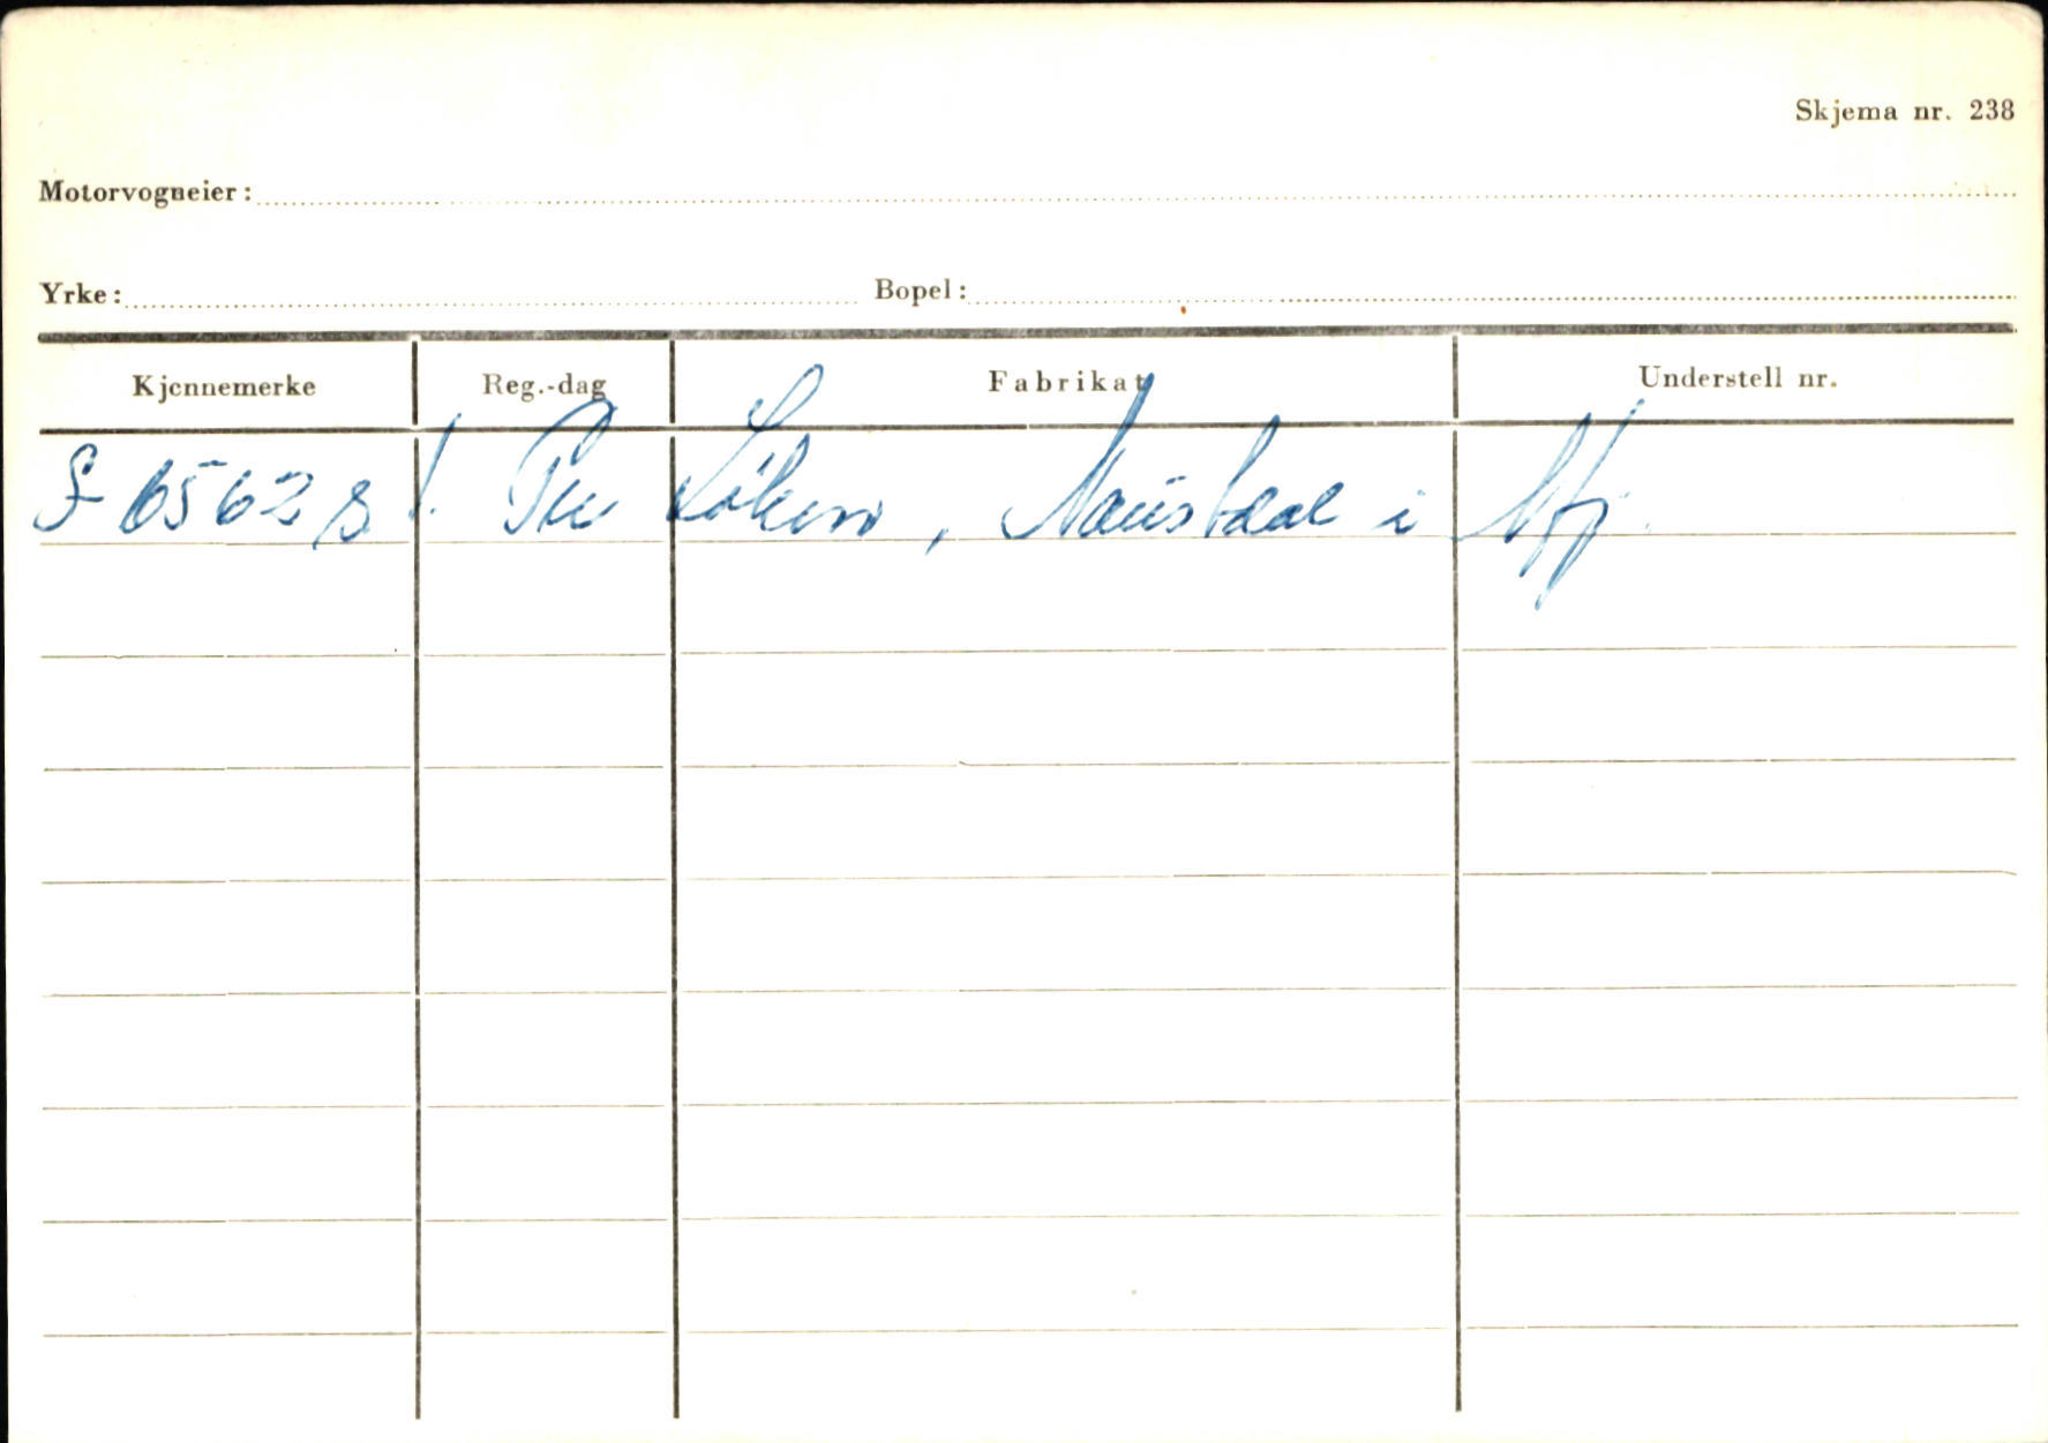 Skjema nr. 238
Motorvogneier:
Yrke: Bopel:
Kjennemerke Reg.-dag Fabrikat Understell nr.
S-6562 Per Løken, Naustdal i Sfj.